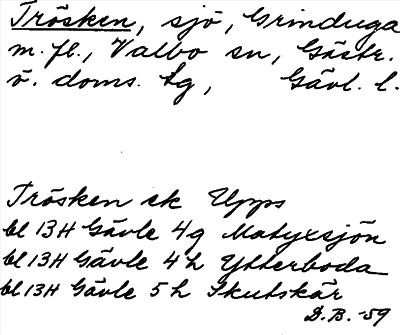 Trösken, sjö, Grinduga
m. fl., Valbo sn, Gästr.
ö. doms. tg, Gävl. l.
Trösken ek Upps
bl 13H Gävle 4g Matyxsjön
bl 13H Gävle 4h Ytterboda
bl 13H Gävle 5h Skutskär
D.B. -59